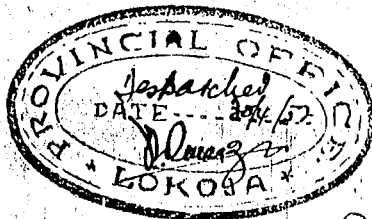 PROVINCIAL OFFICE
Despatched
DATE----20/4/57.
* LOKOJA *